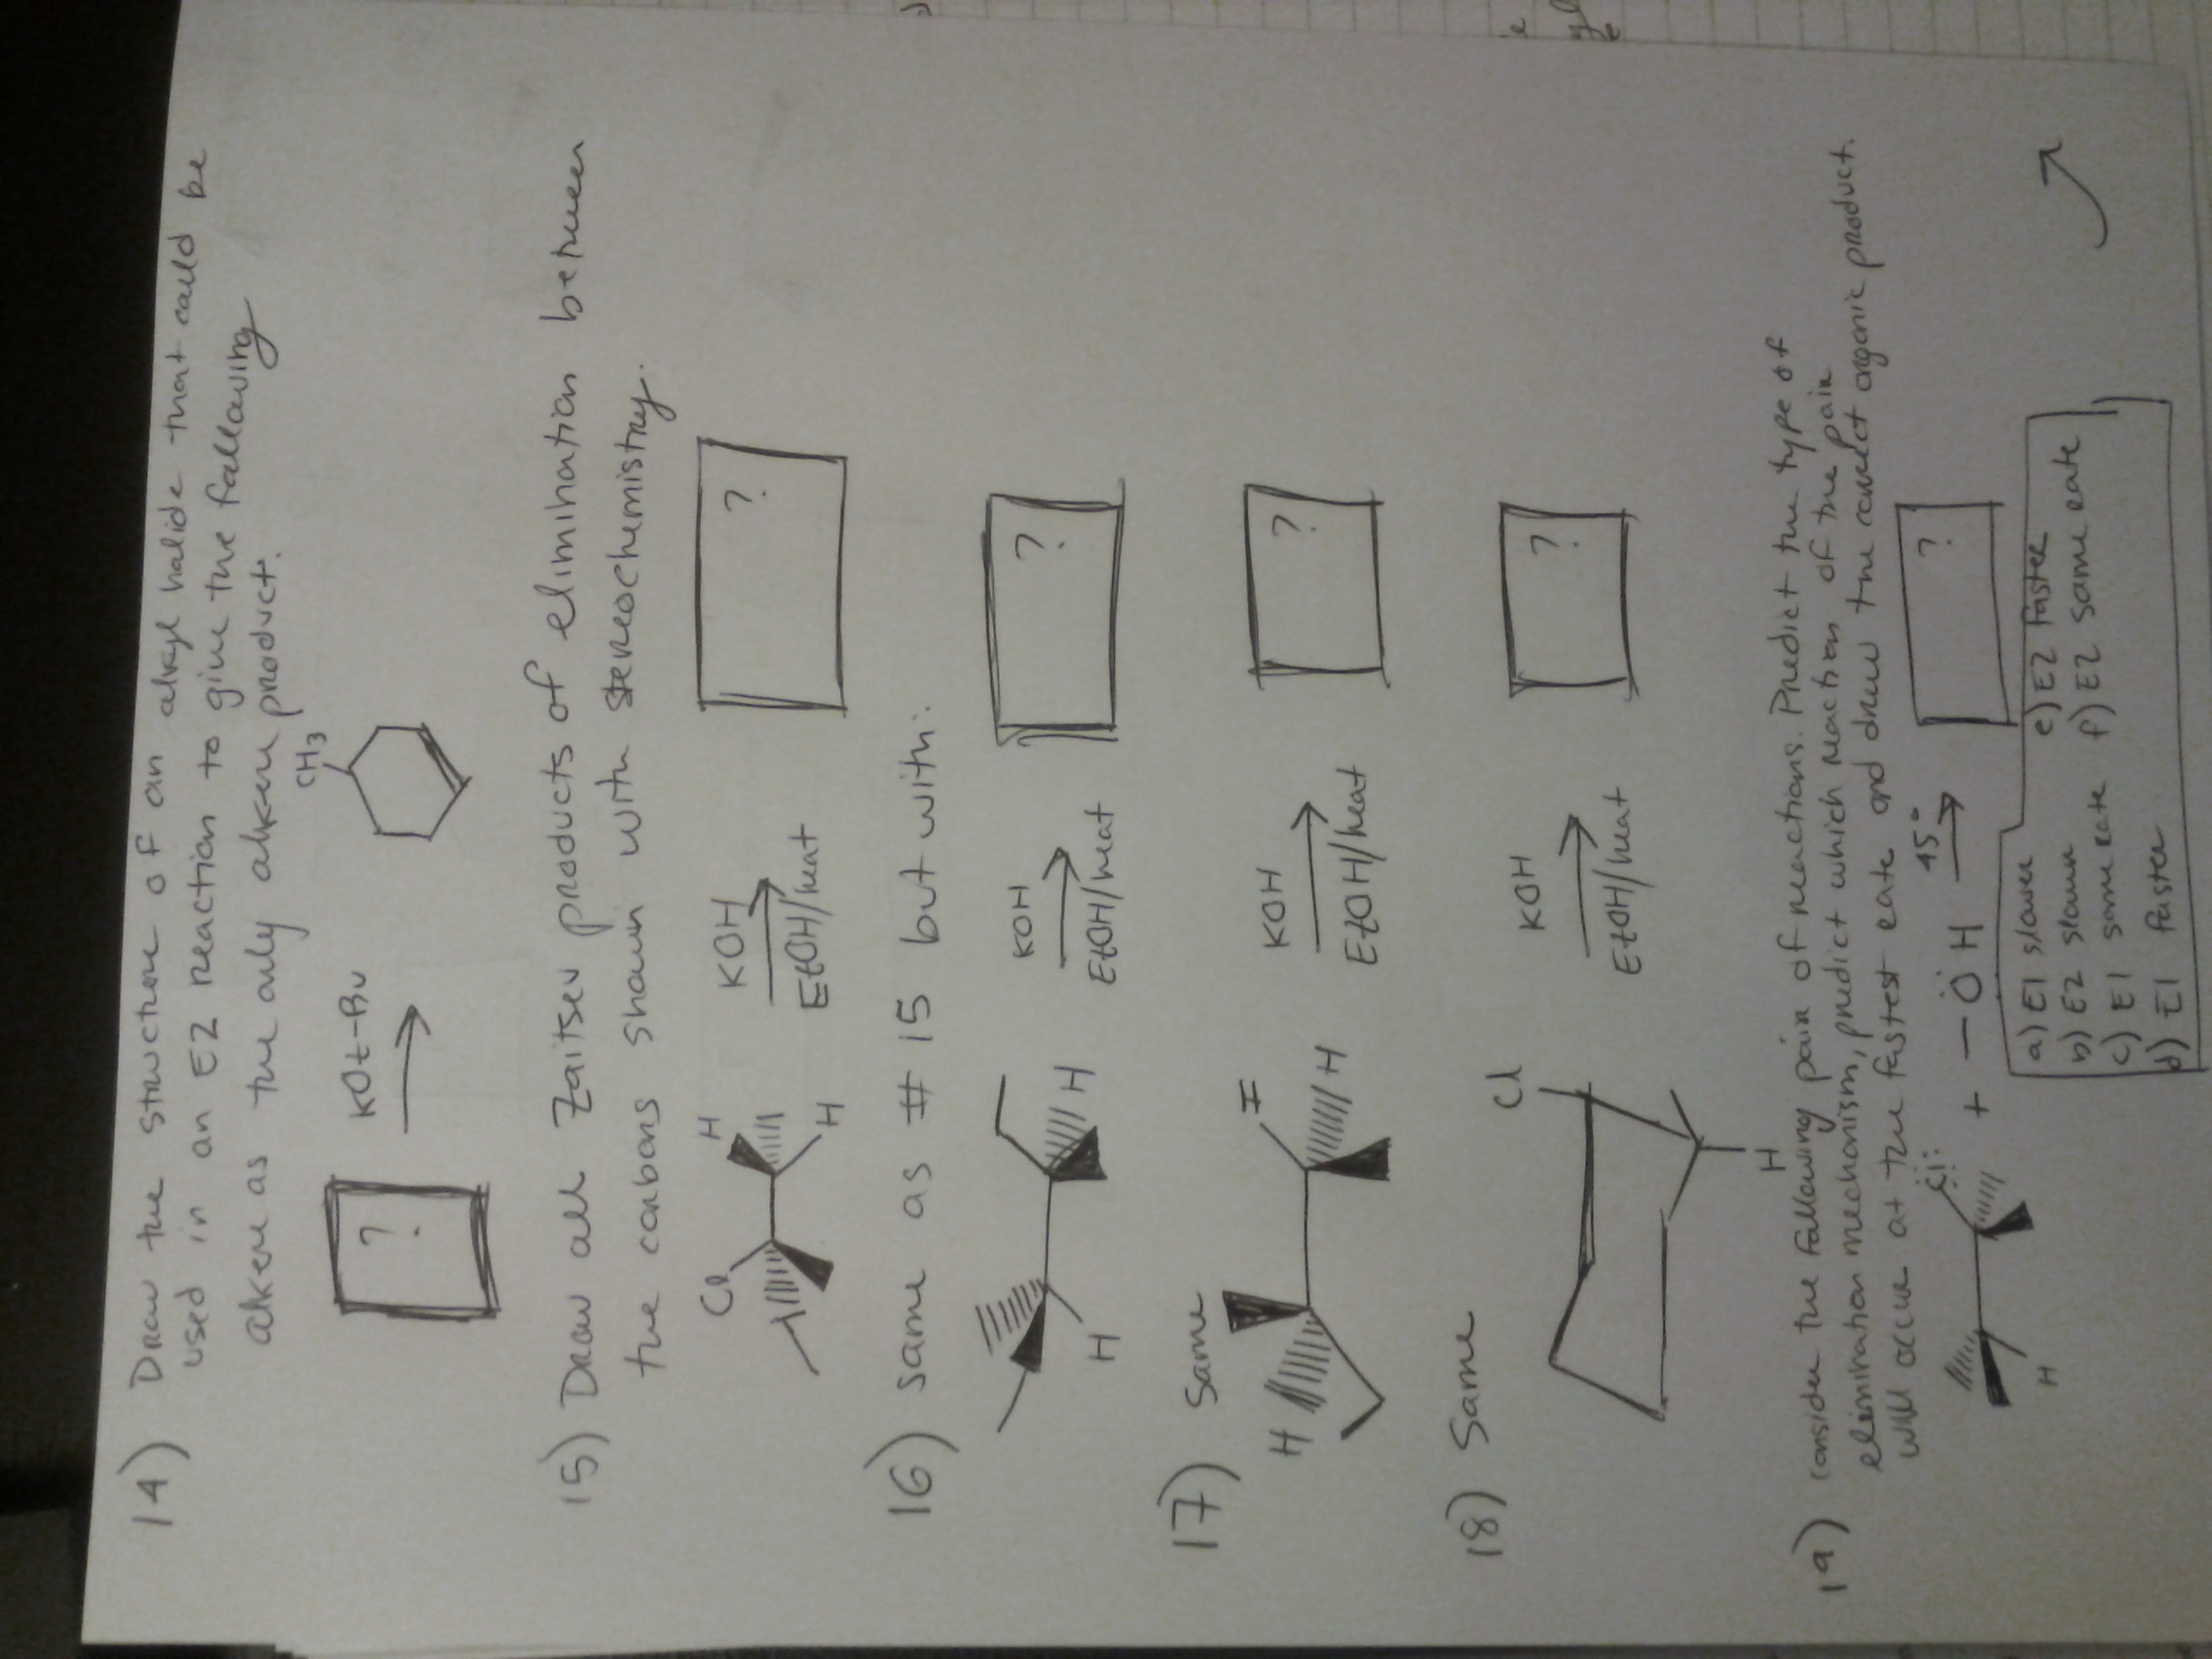 14) Draw the structure of an alkyl halide that could be
used in an E2 reaction to give the following
alkene as the only alkene product.
? KOt-Bu CH3
15) Draw all Zaitsev products of elimination between
the carbons shown with stereochemistry.
Cl H H KOH EtOH/heat ?
16) same as #15 but with:
H H KOH EtOH/heat ?
17) Same
H H KOH EtOH/heat ?
18) Same
Cl H KOH EtOH/heat ?
19) consider the following pair of reactions. Predict the type of
elimination mechanism, predict which reaction of the pair
will occur at the fastest rate and draw the correct organic product.
H Cl + -OH 45° ?
a) E1 slower e) E2 faster
b) E2 slower f) E2 same rate
c) E1 same rate
d) E1 faster